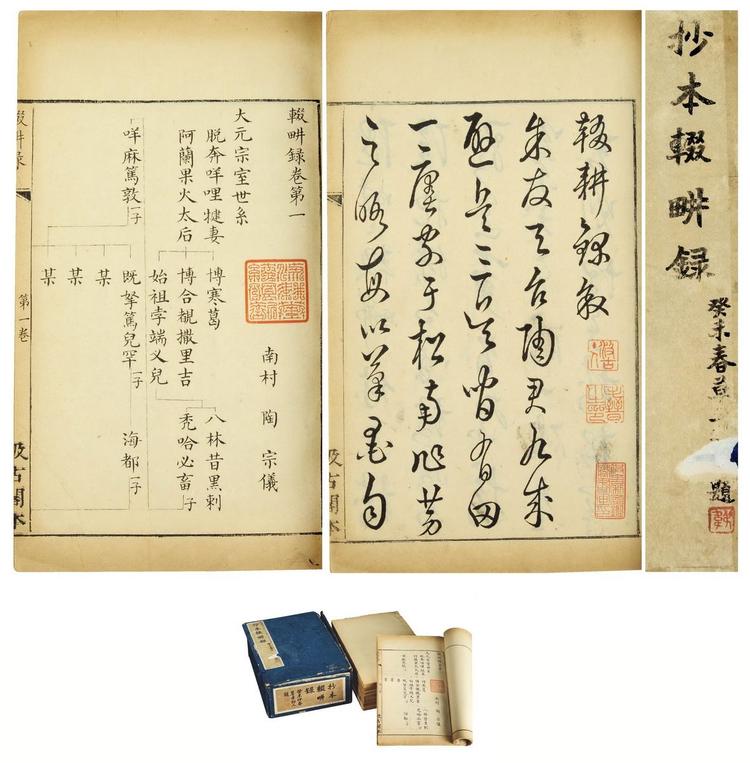 抄本輟畊録
癸未春
題
輟耕録敘
余友天台陶君九成
避兵三吳間有田
一廛家于松南作勞
之暇每以筆墨自
汲古閣本
輟畊録卷第一
南村 陶宗儀
大元宗室世系
脱奔咩哩犍妻
阿蘭果火太后
博寒葛
博合覩撒里吉
始祖孛端义兒
八林昔黒剌
禿哈必畜 子
咩麻篤敦 一子
既拏篤兒罕 一子
海都 一子
某
某
某
輟畊录
第一卷
汲古閣本
抄本輟畊録